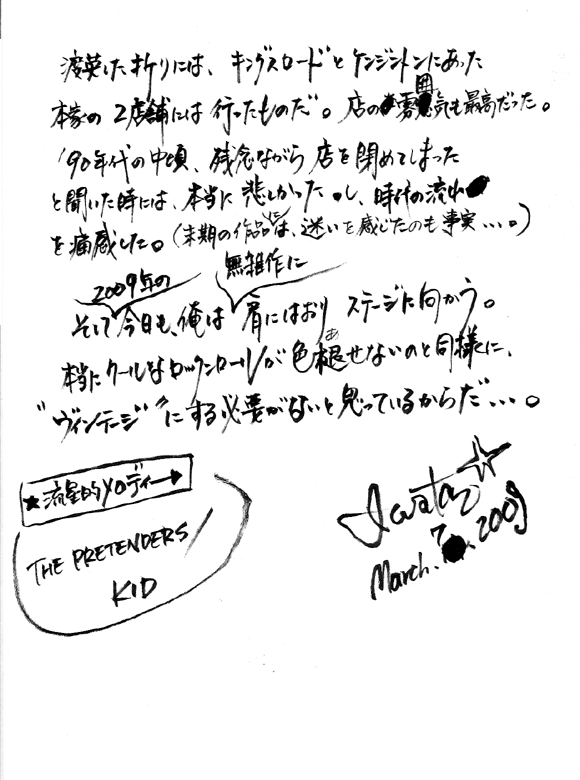 渡英した折りには、キングスロードとケンジントンにあった
本家の2店舗には行ったものだ。店の雰囲気も最高だった。
'90年代の中頃、残念ながら店を閉めてしまった
と聞いた時には、本当に悲しかったし、時代の流れ
を痛感した。(末期の作品には、迷いを感じたのも事実…。)
そして2009年の今日も、俺は無雑作に肩にはおりステージに向かう。
本当にクールなロックンロールが色褪あせないのと同様に、
"ヴィンテージ"にする必要がないと思っているからだ…。
★流星的メロディー→
THE PRETENDERS/
KID
March. 7, 2009